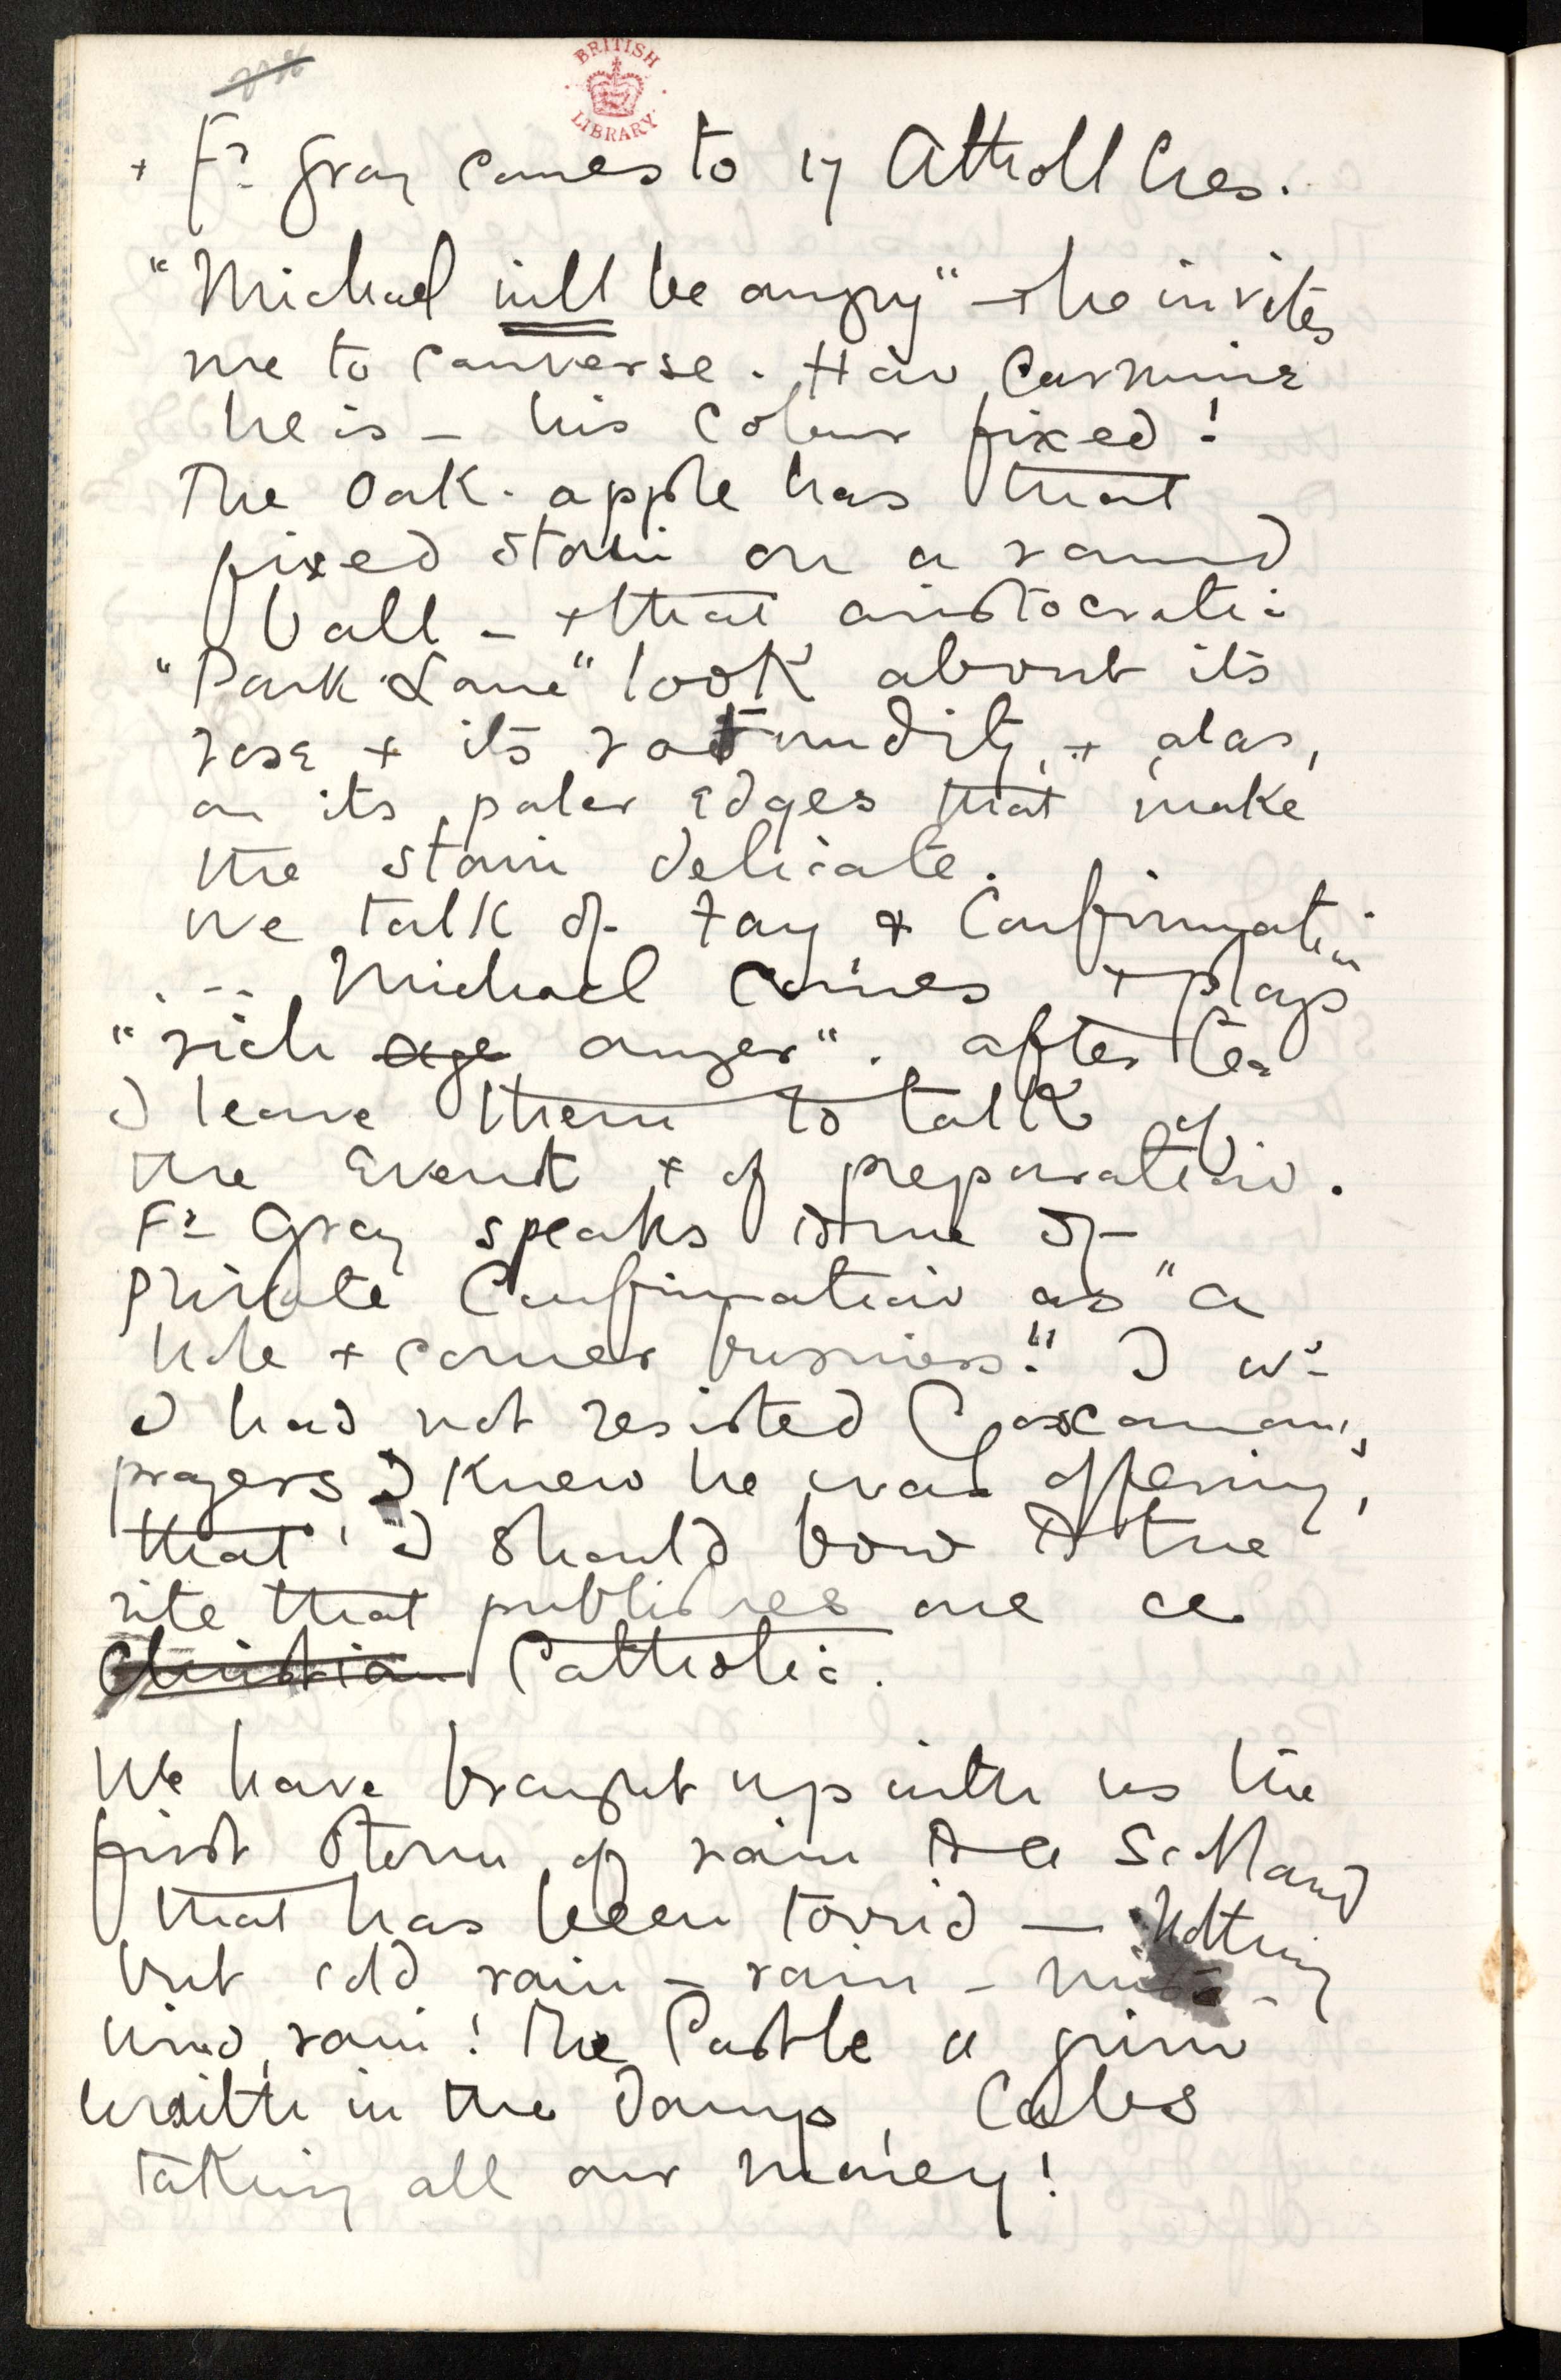 BRITISH
LIBRARY
+ Fr Gray comes to 17 Atholl Cres.
"Michael will be angry" – + he invites
me to converse. How carmine
he is – his colour fixed!
The oak-apple has that
fixed stain on a round
ball – + that aristocratic
"Park Lane" look about its
rose + its rotundity, + alas,
on its paler edges that make
the stain delicate.
We talk of Fay & Confirmation
... Michael comes + "plays"
"rich age anger". After tea
I leave them to talk of
the event + of preparation.
Fr Gray speaks to me of
private Confirmation as "a
hole + corner business." I wd
I had not resisted Goscannon's
prayers I knew he was offering,
that I should bow to the
rite that publishes one a
Christian Catholic.
We have brought up with us the
first storm of rain to a Scotland
that has been torrid — Nothing
but cold rain – rain – mist –
wind, rain! The Castle a grim
wraith in the damp, Cabs
taking all our money!